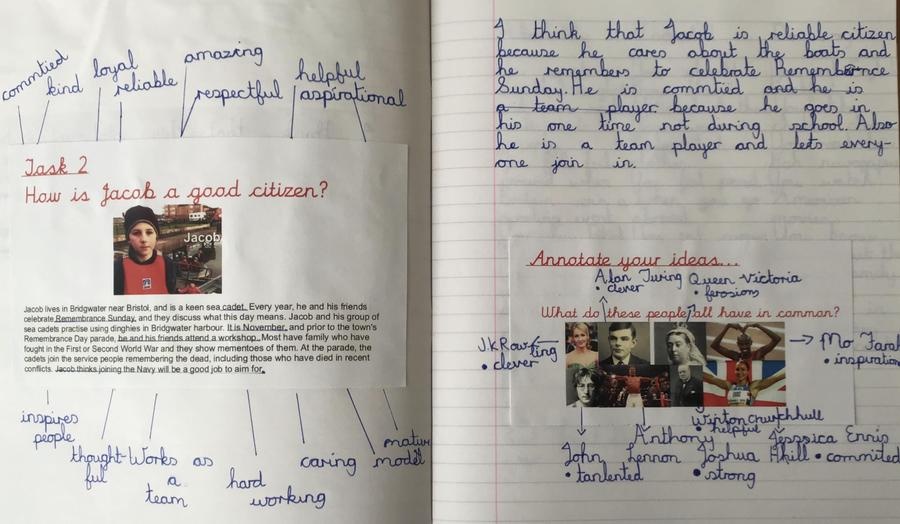 commtied
kind
loyal
reliable
amazing
respectful
helpful
aspirational
Task 2
How is Jacob a good citizen?
Jacob
Jacob lives in Bridgwater near Bristol, and is a keen sea cadet. Every year, he and his friends
celebrate Remembrance Sunday, and they discuss what this day means. Jacob and his group of
sea cadets practise using dinghies in Bridgwater harbour. It is November, and prior to the town's
Remembrance Day parade, he and his friends attend a workshop. Most have family who have
fought in the First or Second World War and they show mementoes of them. At the parade, the
cadets join the service people remembering the dead, including those who have died in recent
conflicts. Jacob thinks joining the Navy will be a good job to aim for.
inspires
people
thought-
ful
Works as
a
team
hard
working
caring
model
I think that Jacob is reliable citizen
because he cares about the boats and
he remembers to celebrate Remembrence
Sunday. He is commtied and he is
a team player because he goes in
his one time not during school. Also
he is a team player and lets every-
one join in.
Annotate your ideas...
Alan Turing
• clever
Queen Victoria
• ferosions
What do these people all have in common?
J.K Rowling
• clever
Mo Farah
• inspiration
Winton churchhull
• helpful
John Lennon
• tantented
Anthony
Joshua
• strong
Jesssica Ennis
Hhill • commited